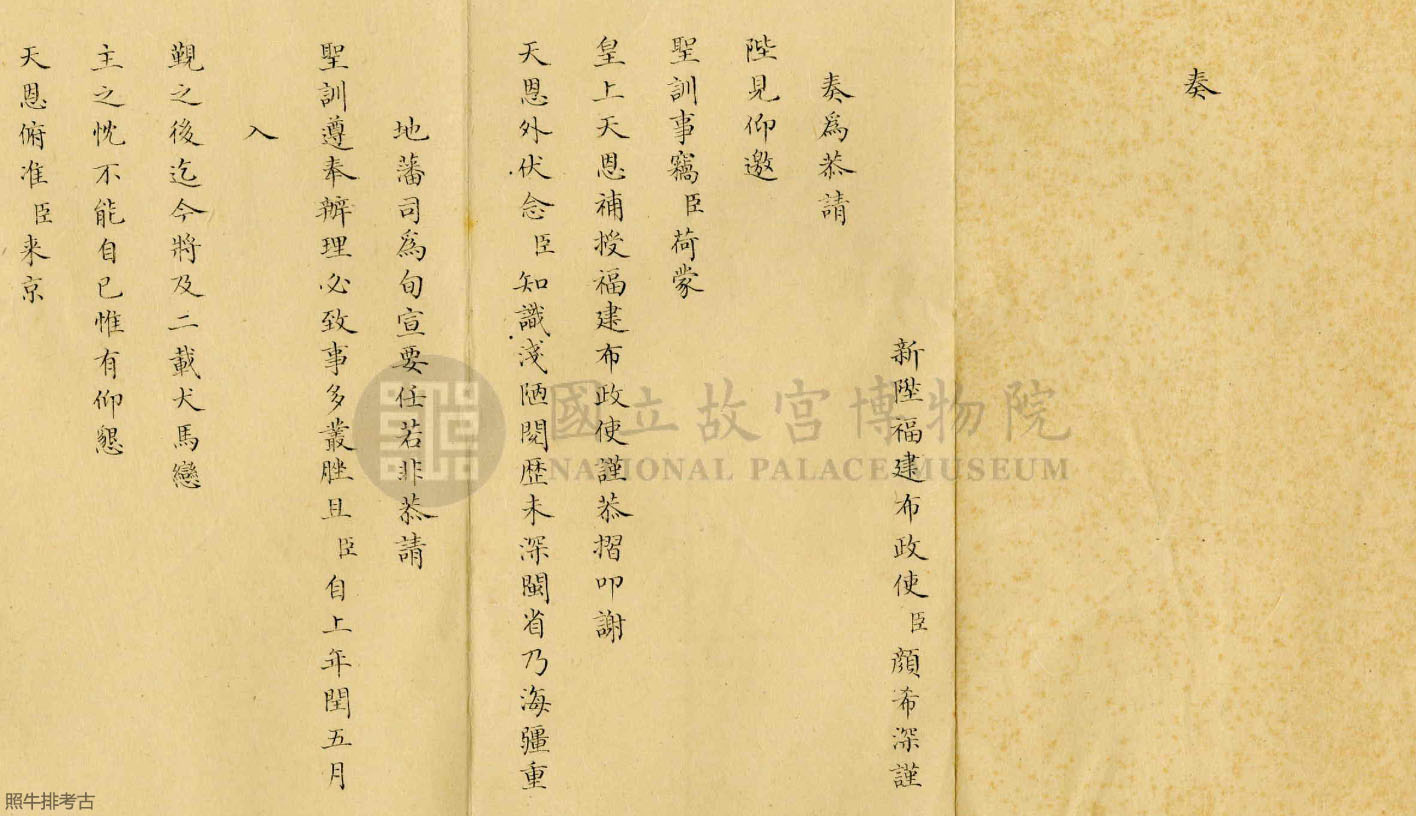 奏
新陞福建布政使臣顔希深謹
奏爲恭請
陛見仰邀
聖訓事竊臣荷蒙
皇上天恩補授福建布政使謹恭摺叩謝
天恩外伏念臣知識淺陋閱歴未深閩省乃海疆重
地藩司爲旬宣要任若非恭請
聖訓遵奉辦理必致事多叢脞且臣自上年閏五月
入
覲之後迄今將及二載犬馬戀
主之忱不能自已惟有仰懇
天恩俯准臣来京
國立故宮博物院
NATIONAL PALACE MUSEUM
照牛排考古